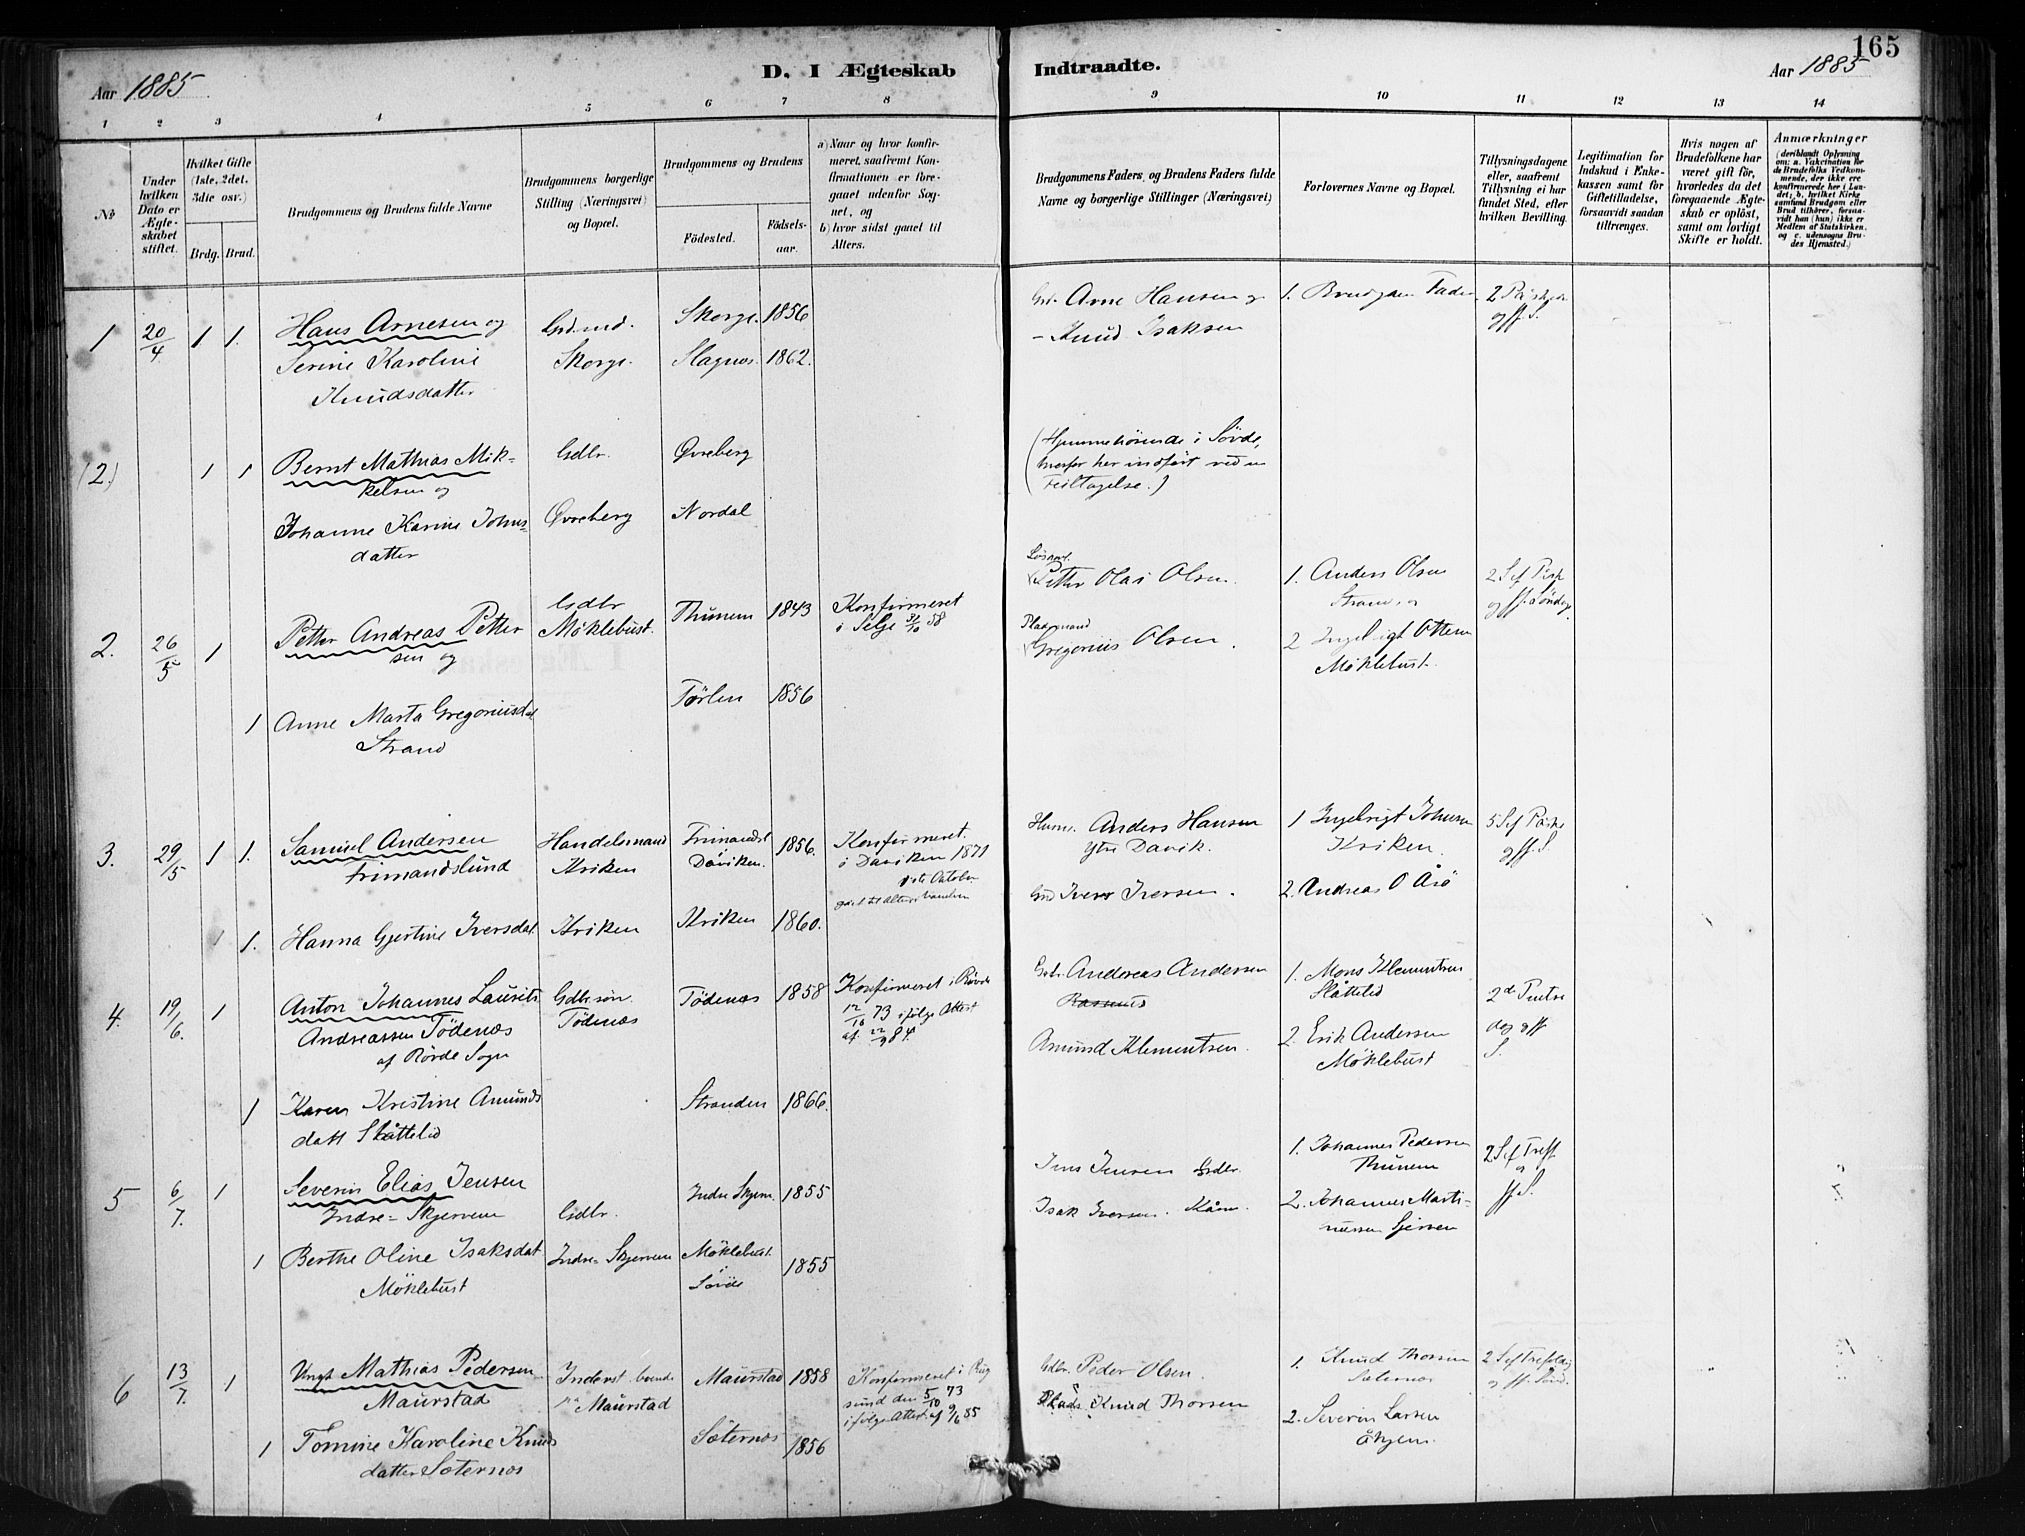 165
Aar 1885
D. I Ægteskab
Indtraadte.
Aar 1885
1 2 3 4 5 6 7 8
9 10 11 12 13 14
No
Under hvilken Dato er Ægteskabet stiftet.
Hvilket Gifte (1ste, 2det, 3die osv.)
Brdg. Brud.
Brudgommens og Brudens fulde Navne
Brudgommens borgerlige Stilling (Næringsvei) og Bopæl.
Brudgommens og Brudens
Fødested.
Fødselsaar.
a) Naar og hvor konfirmeret, saafremt Konfirmationen er foregaaet udenfor Sognet, og
b) hvor sidst gaaet til Alters.
Brudgommens Faders og Brudens Faders fulde Navne og borgerlige Stillinger (Næringsvei)
Forlovernes Navne og Bopæl.
Tillysningsdagene eller, saafremt Tillysning ei har fundet Sted, efter hvilken Bevilling.
Legitimation for Indskud i Enkekassen samt for Giftetilladelse, forsaavidt saadan tiltrænges.
Hvis nogen af Brudefolkene har været gift før, hvorledes da det foregaaende Ægteskab er opløst, samt om lovligt Skifte er holdt.
Anmærkninger
(deriblandt Oplysning om: a. Vakcination for de Brudefolks Vedkommende, der ikke ere konfirmerede her i Landet; b, hvilket Kirkesamfund Brudgom eller Brud tilhører, forsaavidt han (hun) ikke er Medlem af Statskirken, og c. udensogns Brudes Hjemsted.)
1 20/4 1 1. Hans Arnesen og Grd.md. Skorge. 1856
Serine Karoline Skorge. Slagnes. 1862.
Knudsdatter
Arne Hansen og 1. Brudgom Fader
- Knud Isaksen
(2.) 1 1 Bernt Mathias Mik- Gdbr. Øvreberg
kelsen og
Johanne Karine Johns- Øvreberg Nordal
datter
(Hjemmehørende i Søvde,
hvorfor her indført ved en
Feiltagelse.)
2. 26/5 1 Petter Andreas Petter Gdbr Thunem 1843 Konfirmeret
sen og Möklebust. i Selje
1 Anne Marta Gregoriusdat Tørlen 1856
Strand
Petter Olai Olsen. 1. Anders Olsen
Strand, og
Pladsmand
Gregorius Olsen. 2 Ingebrigt Ottesen
Möklebust.
3. 29/5 1 1. Samuel Andersen Handelsmand Frimandsl 1856. Konfirmeret.
Frimandslund Kriken Daviken. i Daviken 1871
1. Hanna Gjertine Iversdat. Kriken Kriken 1860.
Husm. Anders Hansen 1 Ingebrigt Johnsen
Ytre Davik. Kriken.
Iver Iversen. 2. Andreas O Årö
4. 19/6. 1 Anton Johannes Laurits Gdbr. søn. Tödenæs 1858 Konfirmeret i Rövde
Andreassen Tödenæs Tödenæs 12/10 73 ifölge Attest
af Rövde Sogn af 22/9 84.
1 Karen Kristine Amunds Stranden 1866.
datt Slåttelid
Andreas Andersen 1. Mons Klementsen
Rasmus Slåttelid
Amund Klementsen. 2. Erik Andersen
Möklebust
5 6/7. 1 Severin Elias Jensen Indre Skjerv. 1855
Indre-Skjervem Gdbr.
1 Berthe Oline Isaksdat Indre-Skjervem Möklebust 1855
Möklebust Sövde
Jens Jensen Gdbr. 1. Johannes Pedersen
Thunem
Isak Iversen. 2. Johannes Marti-
nussen
6 13/7. 1 Ungk Mathias Pedersen Inderst. Maurstad 1858 Konfirmeret i Rug
Maurstad Maurstad sund den 5/10 73
ifölge Attest af 9/6 85
1 Tomine Karoline Knuds Sæternes 1856
datter Sæternes
Gdbr. Peder Olsen. 1. Knud Thorsen
Sæternes
Knud Thorsen 2. Severin Larsen